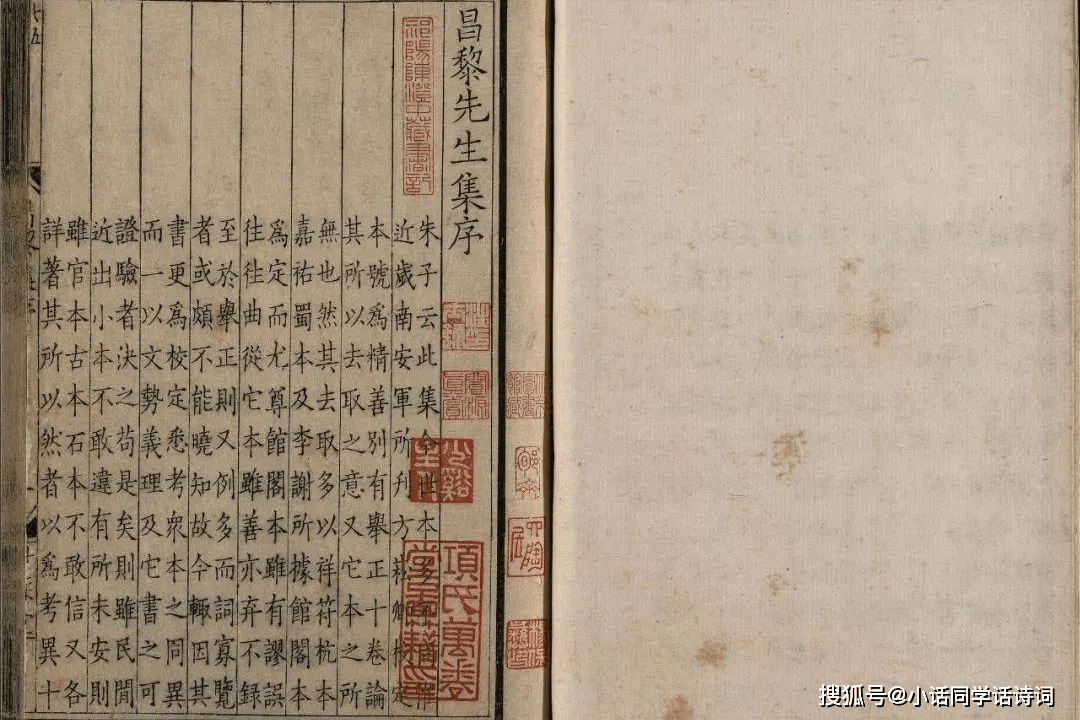 昌黎先生集序
朱子云此集今世本多
近歲南安軍所刊方校定
本號爲精善別有舉正十卷論
其所以去取之意又它本之所
無也然其去取多以祥符杭本
嘉祐蜀本及李謝所據館閣本
爲定而尤尊館閣本雖有謬誤
往往曲從它本雖善亦弃不録
至於舉正則又例多而詞寡覽
者或頗不能曉知故今輒因其
書更爲校定悉考衆本之同異
而一以文勢義理及它書之可
證驗者決之苟是矣則雖民間
近出小本不敢違有所未安則
雖官本古本石本不敢信又各
詳著其所以然者以爲考異十
項氏萬卷
堂圖籍印
搜狐号@小话同学话诗词